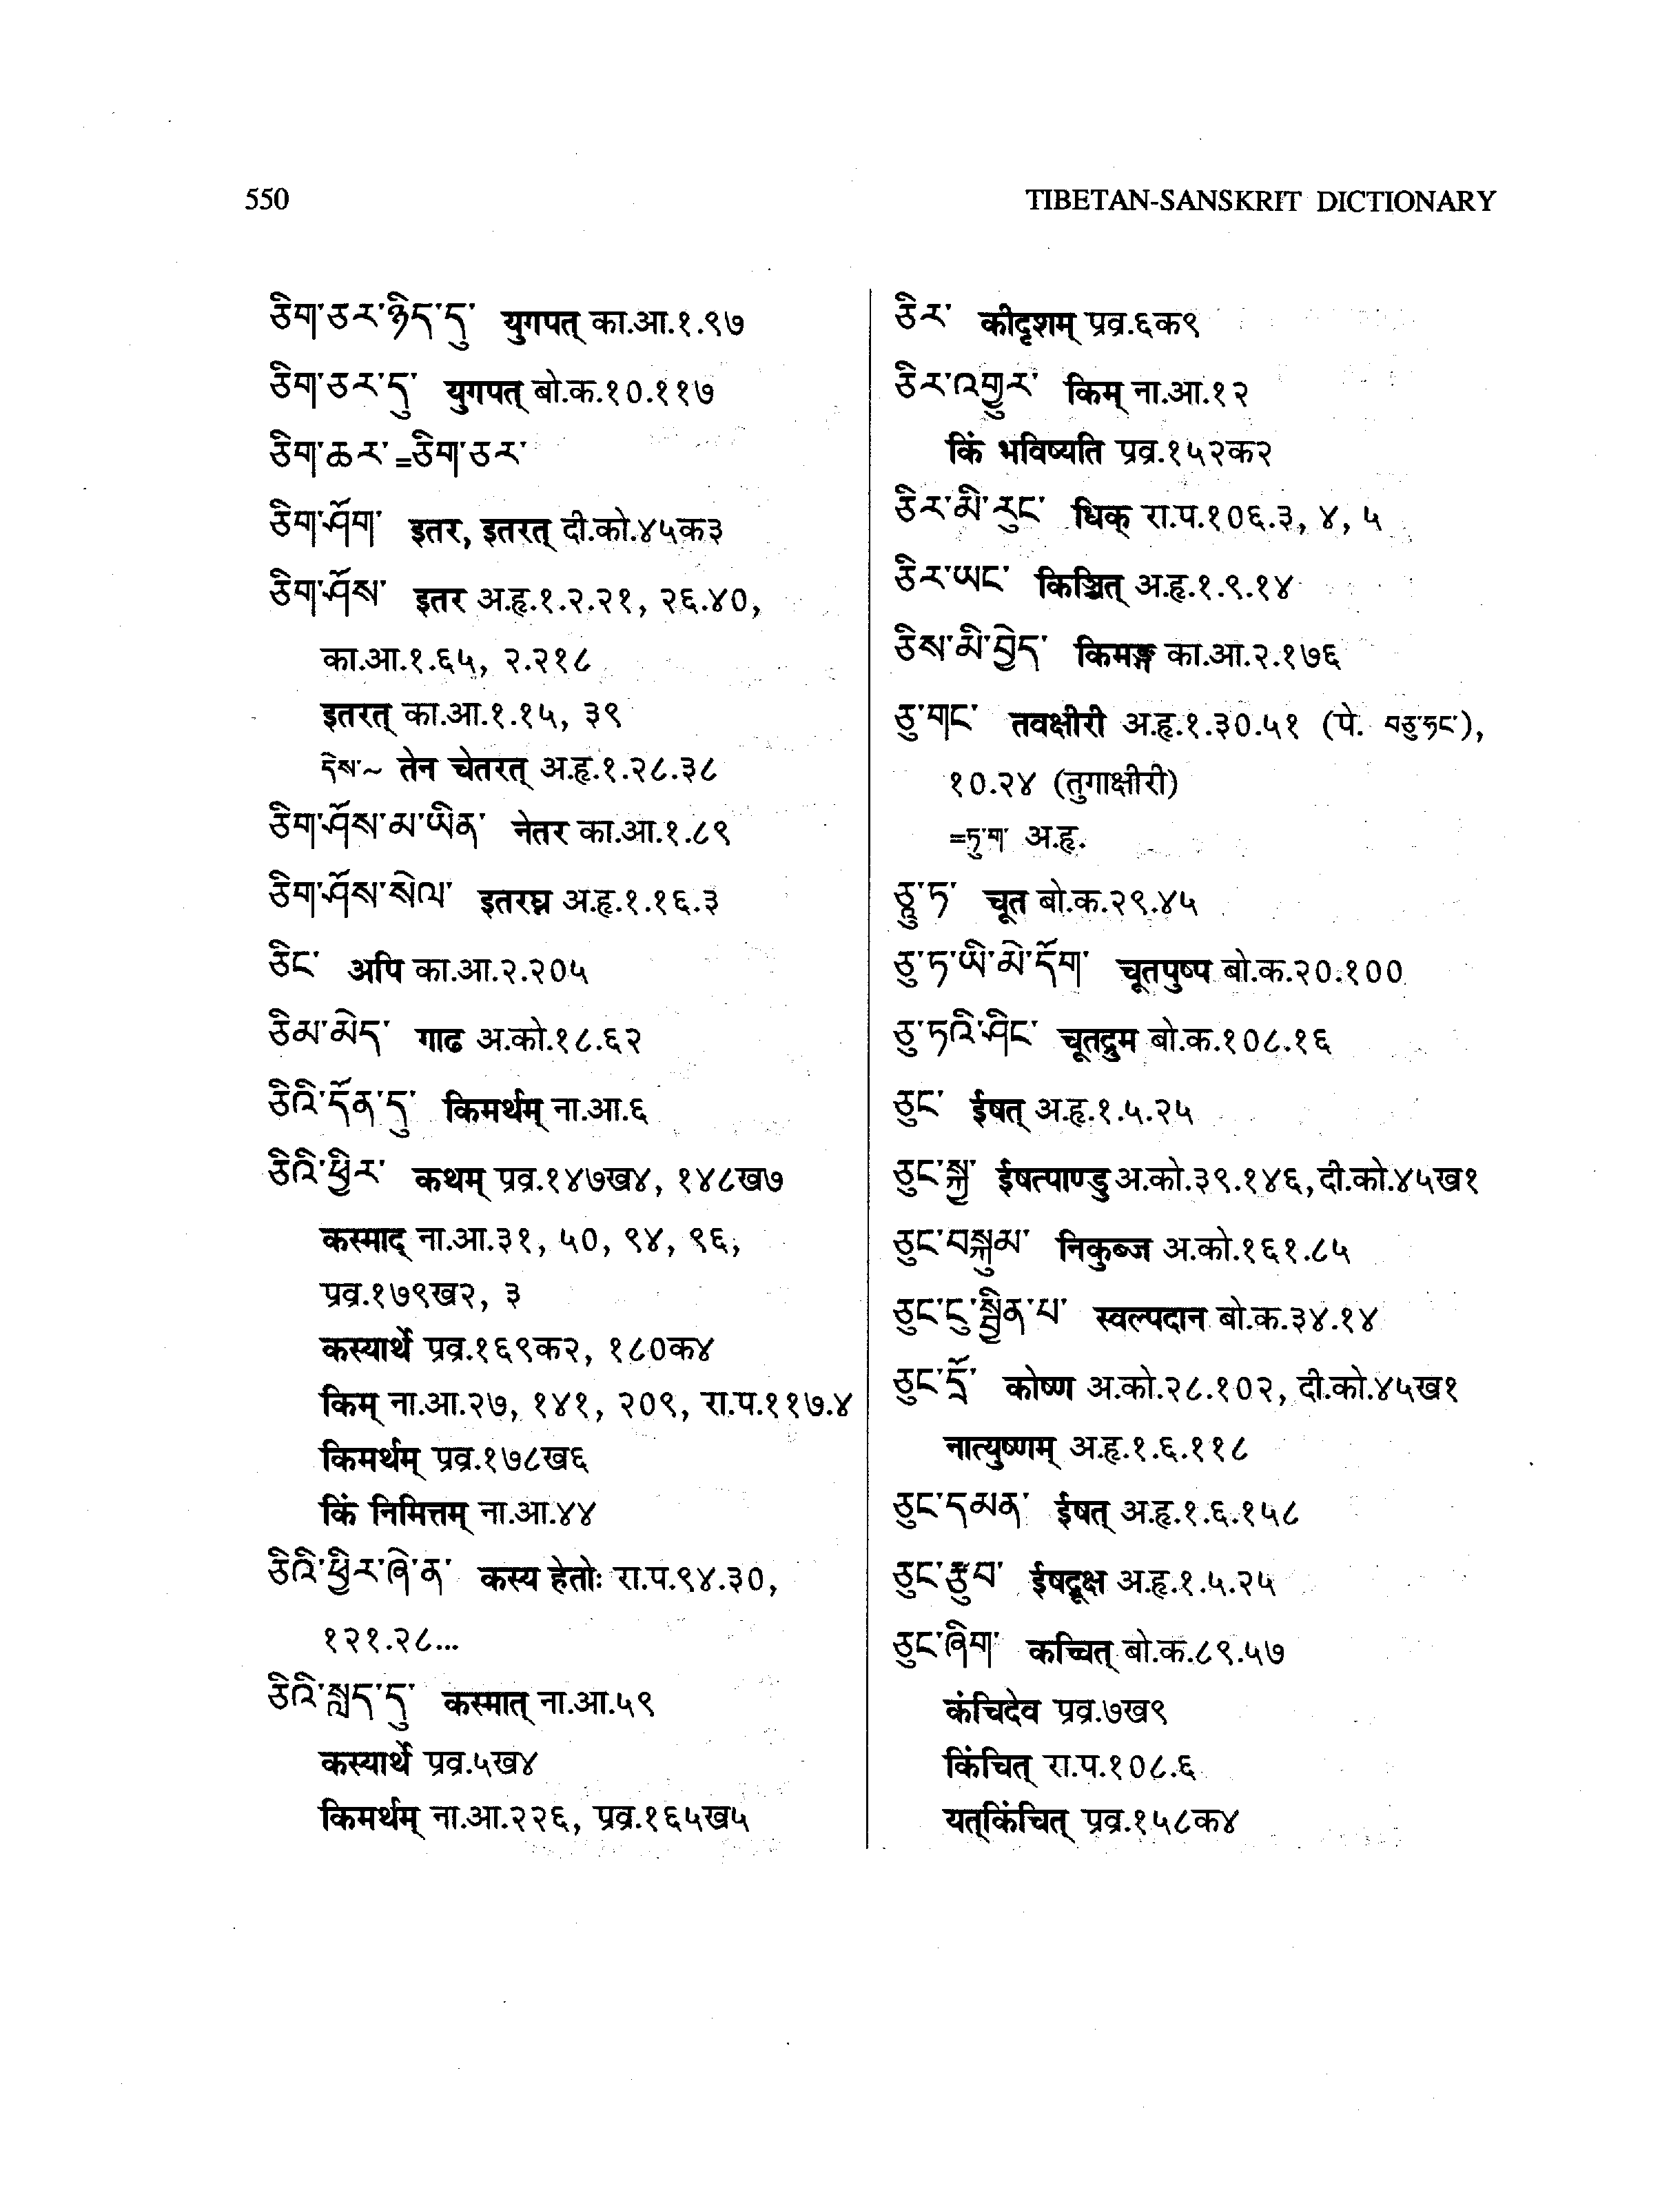 550
TIBETAN-SANSKRIT DICTIONARY
ཅིག་ཅར་ཉིད་དུ་ युगपत् का.आ.१.९७
ཅིག་ཅར་དུ་ युगपत् बो.क.१०.११७
ཅིག་ཆར་=ཅིག་ཅར་
ཅིག་ཤོག་ इतर, इतरत् दी.को.४५क३
ཅིག་ཤོས་ इतर अ.हृ.१.२.२१, २६.४०,
का.आ.१.६५, २.२१८
इतरत् का.आ.१.१५, ३९
དེས་~ तेन चेतरत् अ.हृ.१.२८.३८
ཅིག་ཤོས་མ་ཡིན་ नेतर का.आ.१.८९
ཅིག་ཤོས་སེལ་ इतरघ्न अ.हृ.१.१६.३
ཅིང་ अपि का.आ.२.२०५
ཅིམ་མེད་ गाढ अ.को.१८.६२
ཅིའི་དོན་དུ་ किमर्थम् ना.आ.६
ཅིའི་ཕྱིར་ कथम् प्रव्र.१४७ख४, १४८ख७
कस्माद् ना.आ.३१, ५०, ९४, ९६,
प्रव्र.१७९ख२, ३
कस्यार्थे प्रव्र.१६९क२, १८०क४
किम् ना.आ.२७, १४१, २०९, रा.प.११७.४
किमर्थम् प्रव्र.१७८ख६
किं निमित्तम् ना.आ.४४
ཅིའི་ཕྱིར་ཞེ་ན་ कस्य हेतोः रा.प.९४.३०,
१२१.२८...
ཅིའི་སླད་དུ་ कस्मात् ना.आ.५९
कस्यार्थे प्रव्र.५ख४
किमर्थम् ना.आ.२२६, प्रव्र.१६५ख५
ཅིར་ कीदृशम् प्रव्र.६क९
ཅིར་འགྱུར་ किम् ना.आ.१२
किं भविष्यति प्रव्र.१५२क२
ཅིར་མི་རུང་ धिक् रा.प.१०६.३, ४, ५
ཅིར་ཡང་ किञ्चित् अ.हृ.१.९.१४
ཅིས་མི་བྱེད་ किमङ्ग का.आ.२.१७६
ཅུ་གང་ तवक्षीरी अ.हृ.१.३०.५१ (पे. བཅུ་ཧང་),
१०.२४ (तुगाक्षीरी)
=ཏུ་ག་ अ.हृ.
ཅཱུ་ཏ་ चूत बो.क.२९.४५
ཅུ་ཏ་ཡི་མེ་ཏོག་ चूतपुष्प बो.क.२०.१००
ཅུ་ཏའི་ཤིང་ चूतद्रुम बो.क.१०८.१६
ཅུང་ ईषत् अ.हृ.१.५.२५
ཅུང་སྐྱ་ ईषत्पाण्डु अ.को.३९.१४६, दी.को.४५ख१
ཅུང་བསྐུམ་ निकुब्ज अ.को.१६१.८५
ཅུང་ངུ་སྦྱིན་པ་ स्वल्पदान बो.क.३४.१४
ཅུང་དྲོ་ कोष्ण अ.को.२८.१०२, दी.को.४५ख१
नात्युष्णम् अ.हृ.१.६.११८
ཅུང་དམན་ ईषत् अ.हृ.१.६.१५८
ཅུང་རྩུབ་ ईषद्रूक्ष अ.हृ.१.५.२५
ཅུང་ཞིག་ कच्चित् बो.क.८९.५७
कंचिदेव प्रव्र.७ख९
किंचित् रा.प.१०८.६
यत्किंचित् प्रव्र.१५८क४